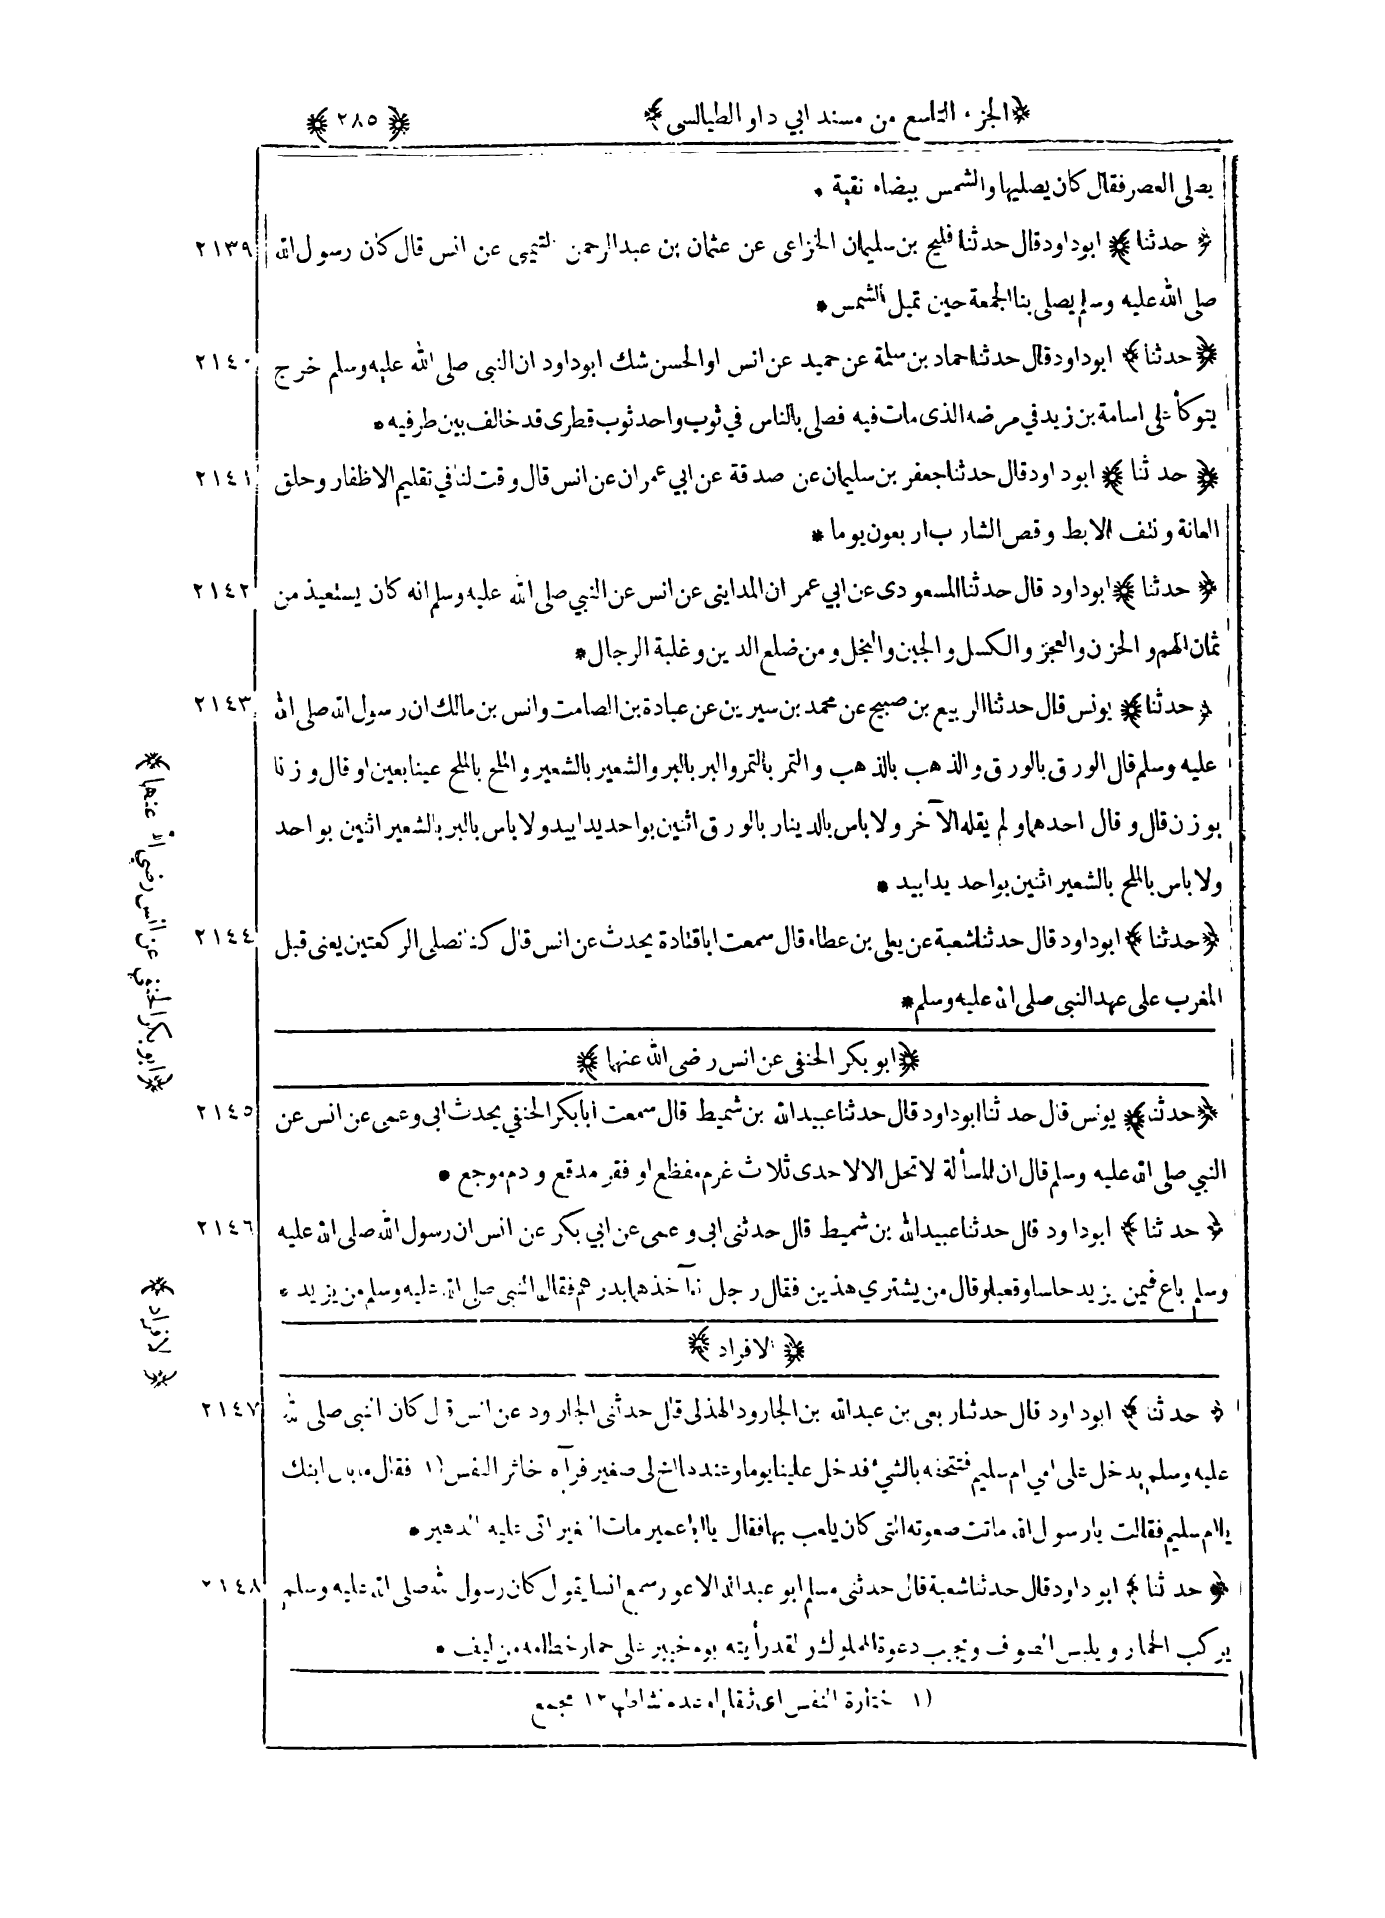 ﴿الجزء التاسع من مسند ابي داو الطيالسى﴾ ﴿٢٨٥﴾
يصلى العصر فقال كان يصليها والشمس بيضاء نقية *
٢١٣٩ ﴿حدثنا﴾ ابوداود قال حدثنا فليح بن سليمان الخزاعى عن عثمان بن عبدالرحمن التيمى عن انس قال كان رسول الله
صلى الله عليه وسلم يصلى بنا الجمعة حين تميل الشمس *
٢١٤٠ ﴿حدثنا﴾ ابوداود قال حدثنا حماد بن سلمة عن حميد عن انس او الحسن شك ابوداود ان النبى صلى الله عليه وسلم خرج
يتوكأ على اسامة بن زيد في مرضه الذى مات فيه فصلى بالناس في ثوب واحد ثوب قطرى قد خالف بين طرفيه *
٢١٤١ ﴿حدثنا﴾ ابوداود قال حدثنا جعفر بن سليمان عن صدقة عن ابي عمران عن انس قال وقت لنا في تقليم الاظفار وحلق
العانة ونتف الابط وقص الشارب اربعون يوما *
٢١٤٢ ﴿حدثنا﴾ ابوداود قال حدثنا المسعودى عن ابي عمران المدايني عن انس عن النبي صلى الله عليه وسلم انه كان يستعيذ من
ثمان الهم والحزن والعجز والكسل والجبن والبخل ومن ضلع الدين وغلبة الرجال *
٢١٤٣ ﴿حدثنا﴾ يونس قال حدثنا الربيع بن صبيح عن محمد بن سيرين عن عبادة بن الصامت وانس بن مالك ان رسول الله صلى الله
عليه وسلم قال الورق بالورق والذهب بالذهب والتمر بالتمر والبر بالبر والشعير بالشعير والملح بالملح عينا بعين او قال وزنا
بوزن قال وقال احدهما ولم يقله الآخر ولا باس بالدينار بالورق اثنين بواحد يدا بيد ولا باس بالبر بالشعير اثنين بواحد
ولا باس بالملح بالشعير اثنين بواحد يدا بيد *
٢١٤٤ ﴿حدثنا﴾ ابوداود قال حدثنا شعبة عن يعلى بن عطاء قال سمعت اباقتادة يحدث عن انس قال كنا نصلى الركعتين يعنى قبل
المغرب على عهد النبى صلى الله عليه وسلم *
﴿ابو بكر الحنفى عن انس رضى الله عنهما﴾
﴿ابو بكر الحنفي عن انس رضي الله عنهما﴾
٢١٤٥ ﴿حدثنا﴾ يونس قال حدثنا ابوداود قال حدثنا عبيدالله بن شميط قال سمعت ابابكر الحنفي يحدث ابى وعمى عن انس عن
النبي صلى الله عليه وسلم قال ان المسألة لا تحل الا لاحدى ثلاث غرم مفظع او فقر مدقع ودم موجع *
٢١٤٦ ﴿حدثنا﴾ ابوداود قال حدثنا عبيدالله بن شميط قال حدثنى ابى وعمى عن ابي بكر عن انس ان رسول الله صلى الله عليه
وسلم باع فيمن يزيد حلسا وقعبا وقال من يشتري هذين فقال رجل انا آخذهما بدرهم فقال النبى صلى الله عليه وسلم من يزيد *
﴿الافراد﴾
﴿الافراد﴾
٢١٤٧ ﴿حدثنا﴾ ابوداود قال حدثنا ربعى بن عبدالله بن الجارود الهذلى قال حدثنى الجارود عن انس قال كان النبى صلى الله
عليه وسلم يدخل على امي ام سليم فتتحفه بالشيء فدخل علينا يوما وعندها اخ لى صغير فرآه خاثر النفس (١ فقال ما بال ابنك
يا ام سليم فقالت يا رسول الله ماتت صعوته التى كان يلعب بها فقال يا ابا عمير مات النغير اتى عليه الدهير *
٢١٤٨ ﴿حدثنا﴾ ابوداود قال حدثنا شعبة قال حدثنى مسلم ابو عبدالله الاعور سمع انسا يقول كان رسول الله صلى الله عليه وسلم
يركب الحمار ويلبس الصوف ويجيب دعوة المملوك ولقد رأيته يوم خيبر على حمار خطامه من ليف *
(١ خثارة النفس اى ثقلها وعدم نشاطها ١٢ مجمع